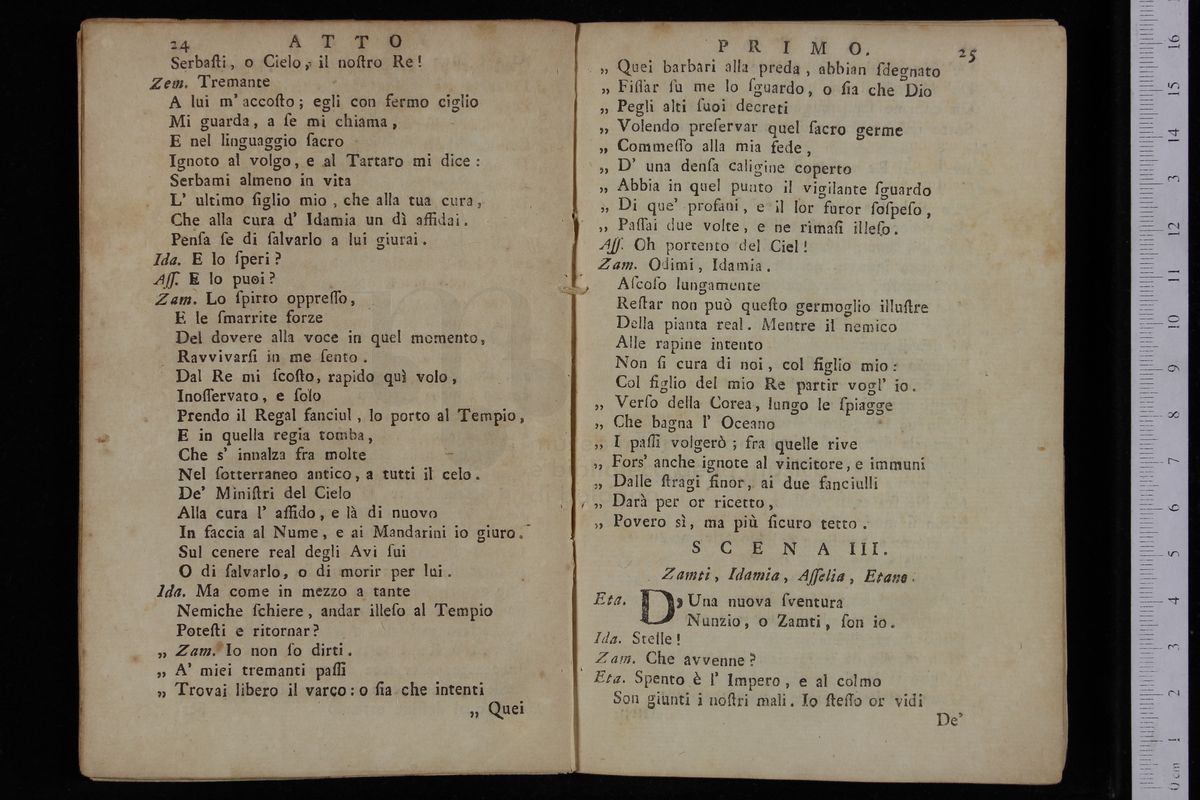 24 A T T O
Serbaſti, o Cielo, il noſtro Re!
Zem. Tremante
A lui m' accoſto; egli con fermo ciglio
Mi guarda, a ſe mi chiama,
E nel linguaggio ſacro
Ignoto al volgo, e al Tartaro mi dice:
Serbami almeno in vita
L' ultimo figlio mio, che alla tua cura,
Che alla cura d' Idamia un dì affidai.
Penſa ſe di ſalvarlo a lui giurai.
Ida. E lo ſperi?
Aſſ. E lo puoi?
Zam. Lo ſpirto oppreſſo,
E le ſmarrite forze
Del dovere alla voce in quel momento,
Ravvivarſi in me ſento.
Dal Re mi ſcoſto, rapido quì volo,
Inoſſervato, e ſolo
Prendo il Regal fanciul, lo porto al Tempio,
E in quella regia tomba,
Che s' innalza fra molte
Nel ſotterraneo antico, a tutti il celo.
De' Miniſtri del Cielo
Alla cura l' affido, e là di nuovo
In faccia al Nume, e ai Mandarini io giuro.
Sul cenere real degli Avi ſui
O di ſalvarlo, o di morir per lui.
Ida. Ma come in mezzo a tante
Nemiche ſchiere, andar illeſo al Tempio
Poteſti e ritornar?
„ Zam. Io non ſo dirti.
„ A' miei tremanti paſſi
„ Trovai libero il varco: o ſia che intenti
„ Quei
P R I M O. 25
„ Quei barbari alla preda, abbian ſdegnato
„ Fiſſar ſu me lo ſguardo, o ſia che Dio
„ Pegli alti ſuoi decreti
„ Volendo preſervar quel ſacro germe
„ Commeſſo alla mia fede,
„ D' una denſa caligine coperto
„ Abbia in quel punto il vigilante ſguardo
„ Di que' profani, e il lor furor ſoſpeſo,
„ Paſſai due volte, e ne rimaſi illeſo.
Aſſ. Oh portento del Ciel!
Zam. Odimi, Idamia.
Aſcoſo lungamente
Reſtar non può queſto germoglio illuſtre
Della pianta real. Mentre il nemico
Alle rapine intento
Non ſi cura di noi, col figlio mio:
Col figlio del mio Re partir vogl' io.
„ Verſo della Corea, lungo le ſpiagge
„ Che bagna l' Oceano
„ I paſſi volgerò; fra quelle rive
„ Fors' anche ignote al vincitore, e immuni
„ Dalle ſtragi finor, ai due fanciulli
„ Darà per or ricetto,
„ Povero sì, ma più ſicuro tetto.
S C E N A III.
Zamti, Idamia, Aſſelia, Etano.
Eta. D' Una nuova ſventura
Nunzio, o Zamti, ſon io.
Ida. Stelle!
Zam. Che avvenne?
Eta. Spento è l' Impero, e al colmo
Son giunti i noſtri mali. Io ſteſſo or vidi
De'